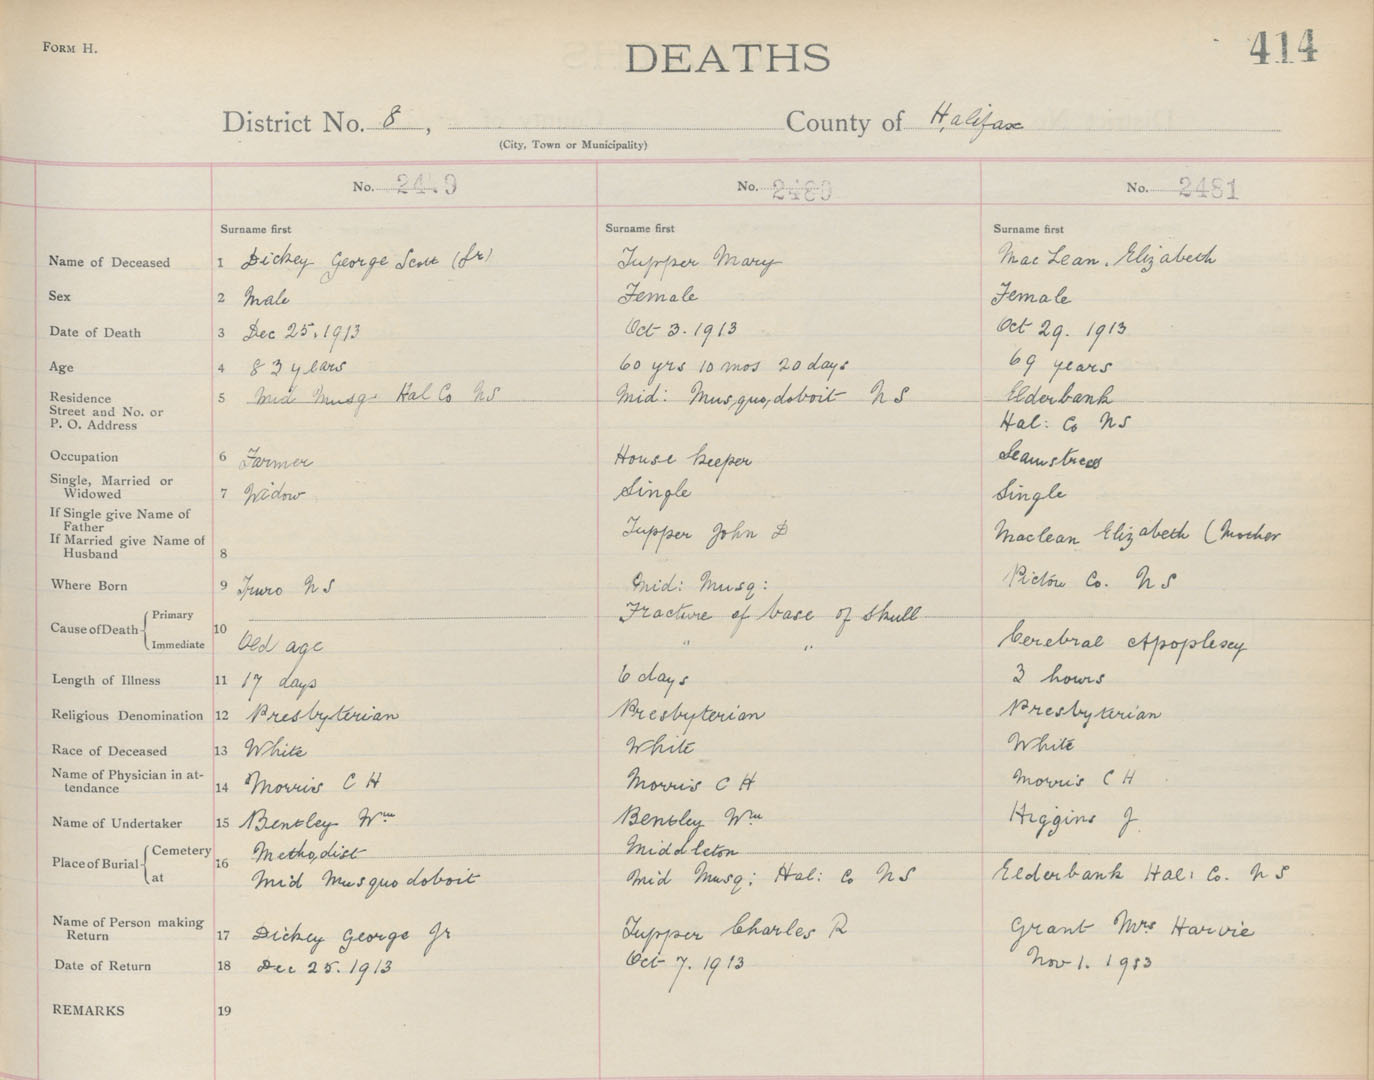 FORM H.
DEATHS
414
District No. 8, County of Halifax
(City, Town or Municipality)
No. No. 2480 No. 2481
Surname first Surname first Surname first
Name of Deceased 1 Dickey George Scott Tupper Mary MacLean, Elizabeth
Sex 2 Male Female Female
Date of Death 3 Dec 25, 1913 Oct 3. 1913 Oct 29. 1913
Age 4 83 years 60 yrs 10 mos 20 days 69 years
Residence 5 Mid Musq Hal Co NS Mid: Musquodoboit NS Elderbank
Street and No. or
P. O. Address Hal: Co NS
Occupation 6 Farmer House keeper Seamstress
Single, Married or
Widowed 7 Widow Single Single
If Single give Name of
Father
If Married give Name of Tupper John D Maclean Elizabeth (Mother
Husband 8
Where Born 9 Truro NS Mid: Musq: Pictou Co. NS
Cause of Death Primary Fracture of base of skull
10 Immediate Old age " " Cerebral Apoplexy
Length of Illness 11 17 days 6 days 3 hours
Religious Denomination 12 Presbyterian Presbyterian Presbyterian
Race of Deceased 13 White White White
Name of Physician in at-
tendance 14 Morris C H Morris C H Morris C H
Name of Undertaker 15 Bentley Wm Bentley Wm Higgins J
Place of Burial Cemetery 16 Methodist Middleton
at Mid Musquodoboit Mid Musq: Hal: Co NS Elderbank Hal: Co. NS
Name of Person making
Return 17 Dickey George Jr Tupper Charles R Grant Mrs Harvie
Date of Return 18 Dec 25. 1913 Oct 7. 1913 Nov 1. 1913
REMARKS 19